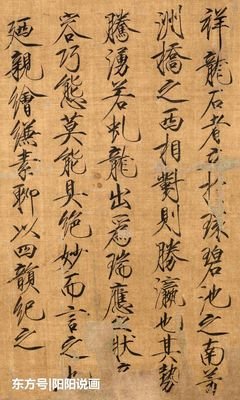 祥龍石者立於環碧池之南芳
洲橋之西相對則勝瀛也其勢
騰湧若虬龍出為瑞應之狀奇
容巧態莫能具絕妙而言之也
廼親繪縑素聊以四韻紀之
东方号|阳阳说画